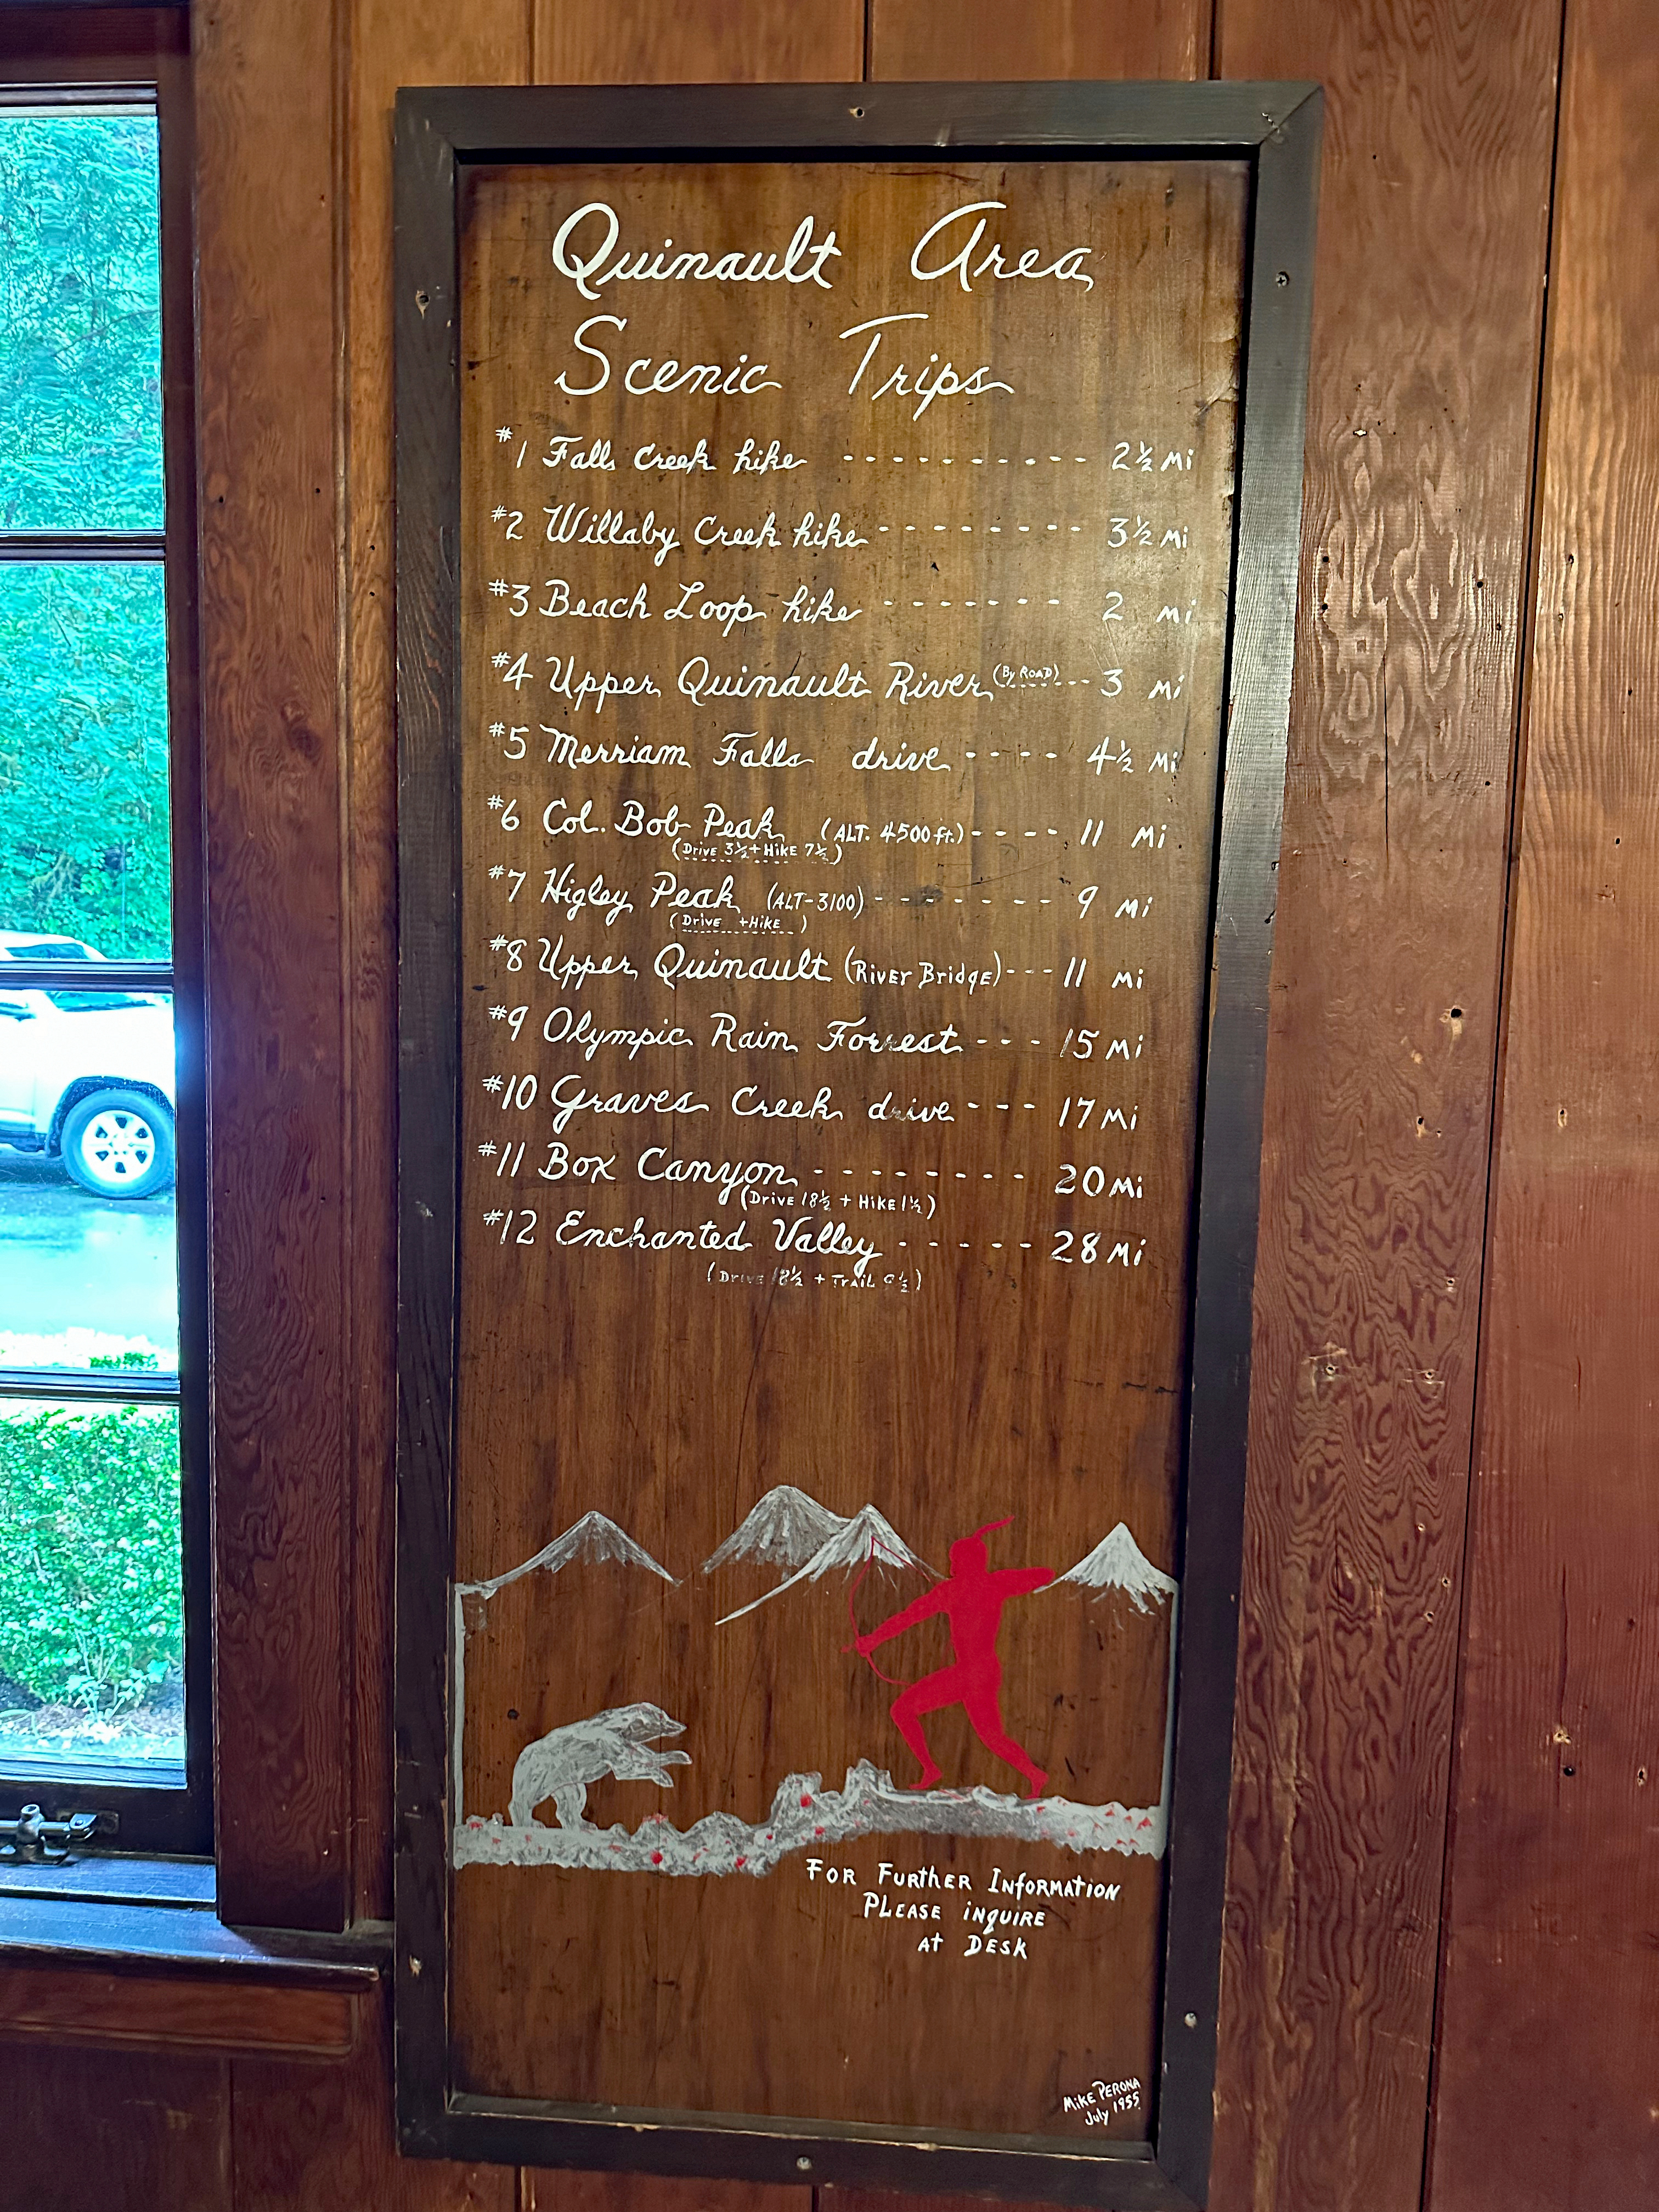 Quinault Area
Scenic Trips
#1 Falls Creek hike ---------- 2½ Mi
#2 Willaby Creek hike -------- 3½ Mi
#3 Beach Loop hike ------- 2 Mi
#4 Upper Quinault River (By ROAD) --- 3 Mi
#5 Merriam Falls drive ---- 4½ Mi
#6 Col. Bob Peak (ALT. 4500 ft.) ---- 11 Mi
(Drive 3½ + HIKE 7½)
#7 Higley Peak (ALT-3100) ------- 9 Mi
(Drive + HIKE )
#8 Upper Quinault (RIVER BRIDGE) --- 11 Mi
#9 Olympic Rain Forrest --- 15 Mi
#10 Graves Creek drive --- 17 Mi
#11 Box Canyon -------- 20 Mi
(DRIVE 18½ + HIKE 1½)
#12 Enchanted Valley ----- 28 Mi
(DRIVE 18½ + TRAIL 9½)
FOR FURTHER INFORMATION
PLEASE INQUIRE
AT DESK
MIKE PERONA
July 1955